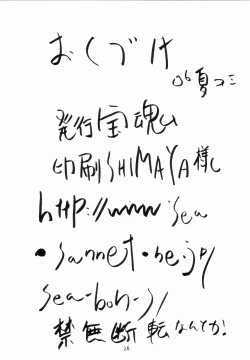 おくづけ
06夏コミ
発行 宝魂
印刷 SHIMAYA様
http://www.sea
.sannet.ne.jp/
sea-boh-s/
禁無断転なんとか!
26